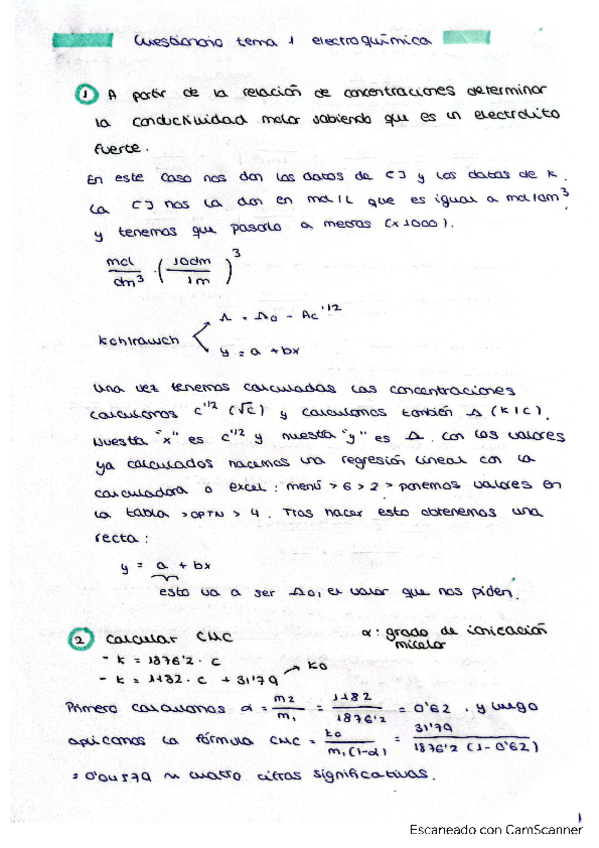 Cuestionario tema 1 electroquímica
1 A partir de la relación de concentraciones determinar
la conductividad molar sabiendo que es un electrolito
fuerte.
En este caso nos dan los datos de [ ] y los datos de k.
La [ ] nos la dan en mol/L que es igual a mol/dm³
y tenemos que pasarlo a metros (x1000).
mol/dm³ · (10dm/1m)³
Kohlrausch
Λ = Λo - Ac^1/2
y = a + bx
Una vez tenemos calculadas las concentraciones
calculamos c^1/2 (√c) y calculamos también Λ (k/c).
Nuestra "x" es c^1/2 y nuestra "y" es Λ. Con los valores
ya calculados hacemos una regresión lineal con la
calculadora o excel: menú > 6 > 2 > ponemos valores en
la tabla > OPTN > 4. Tras hacer esto obtenemos una
recta:
y = a + bx
esto va a ser Λo, el valor que nos piden.
2 Calcular CMC
α: grado de ionización
micelar
- k = 1876'2 · c
- k = 1182 · c + 31'79 → ko
Primero calculamos α = m2/m1 = 1182/1876'2 = 0'62. y luego
aplicamos la fórmula CMC = ko/m1(1-α) = 31'79/1876'2 (1-0'62)
= 0'04579 ~ cuatro cifras significativas.
1
Escaneado con CamScanner